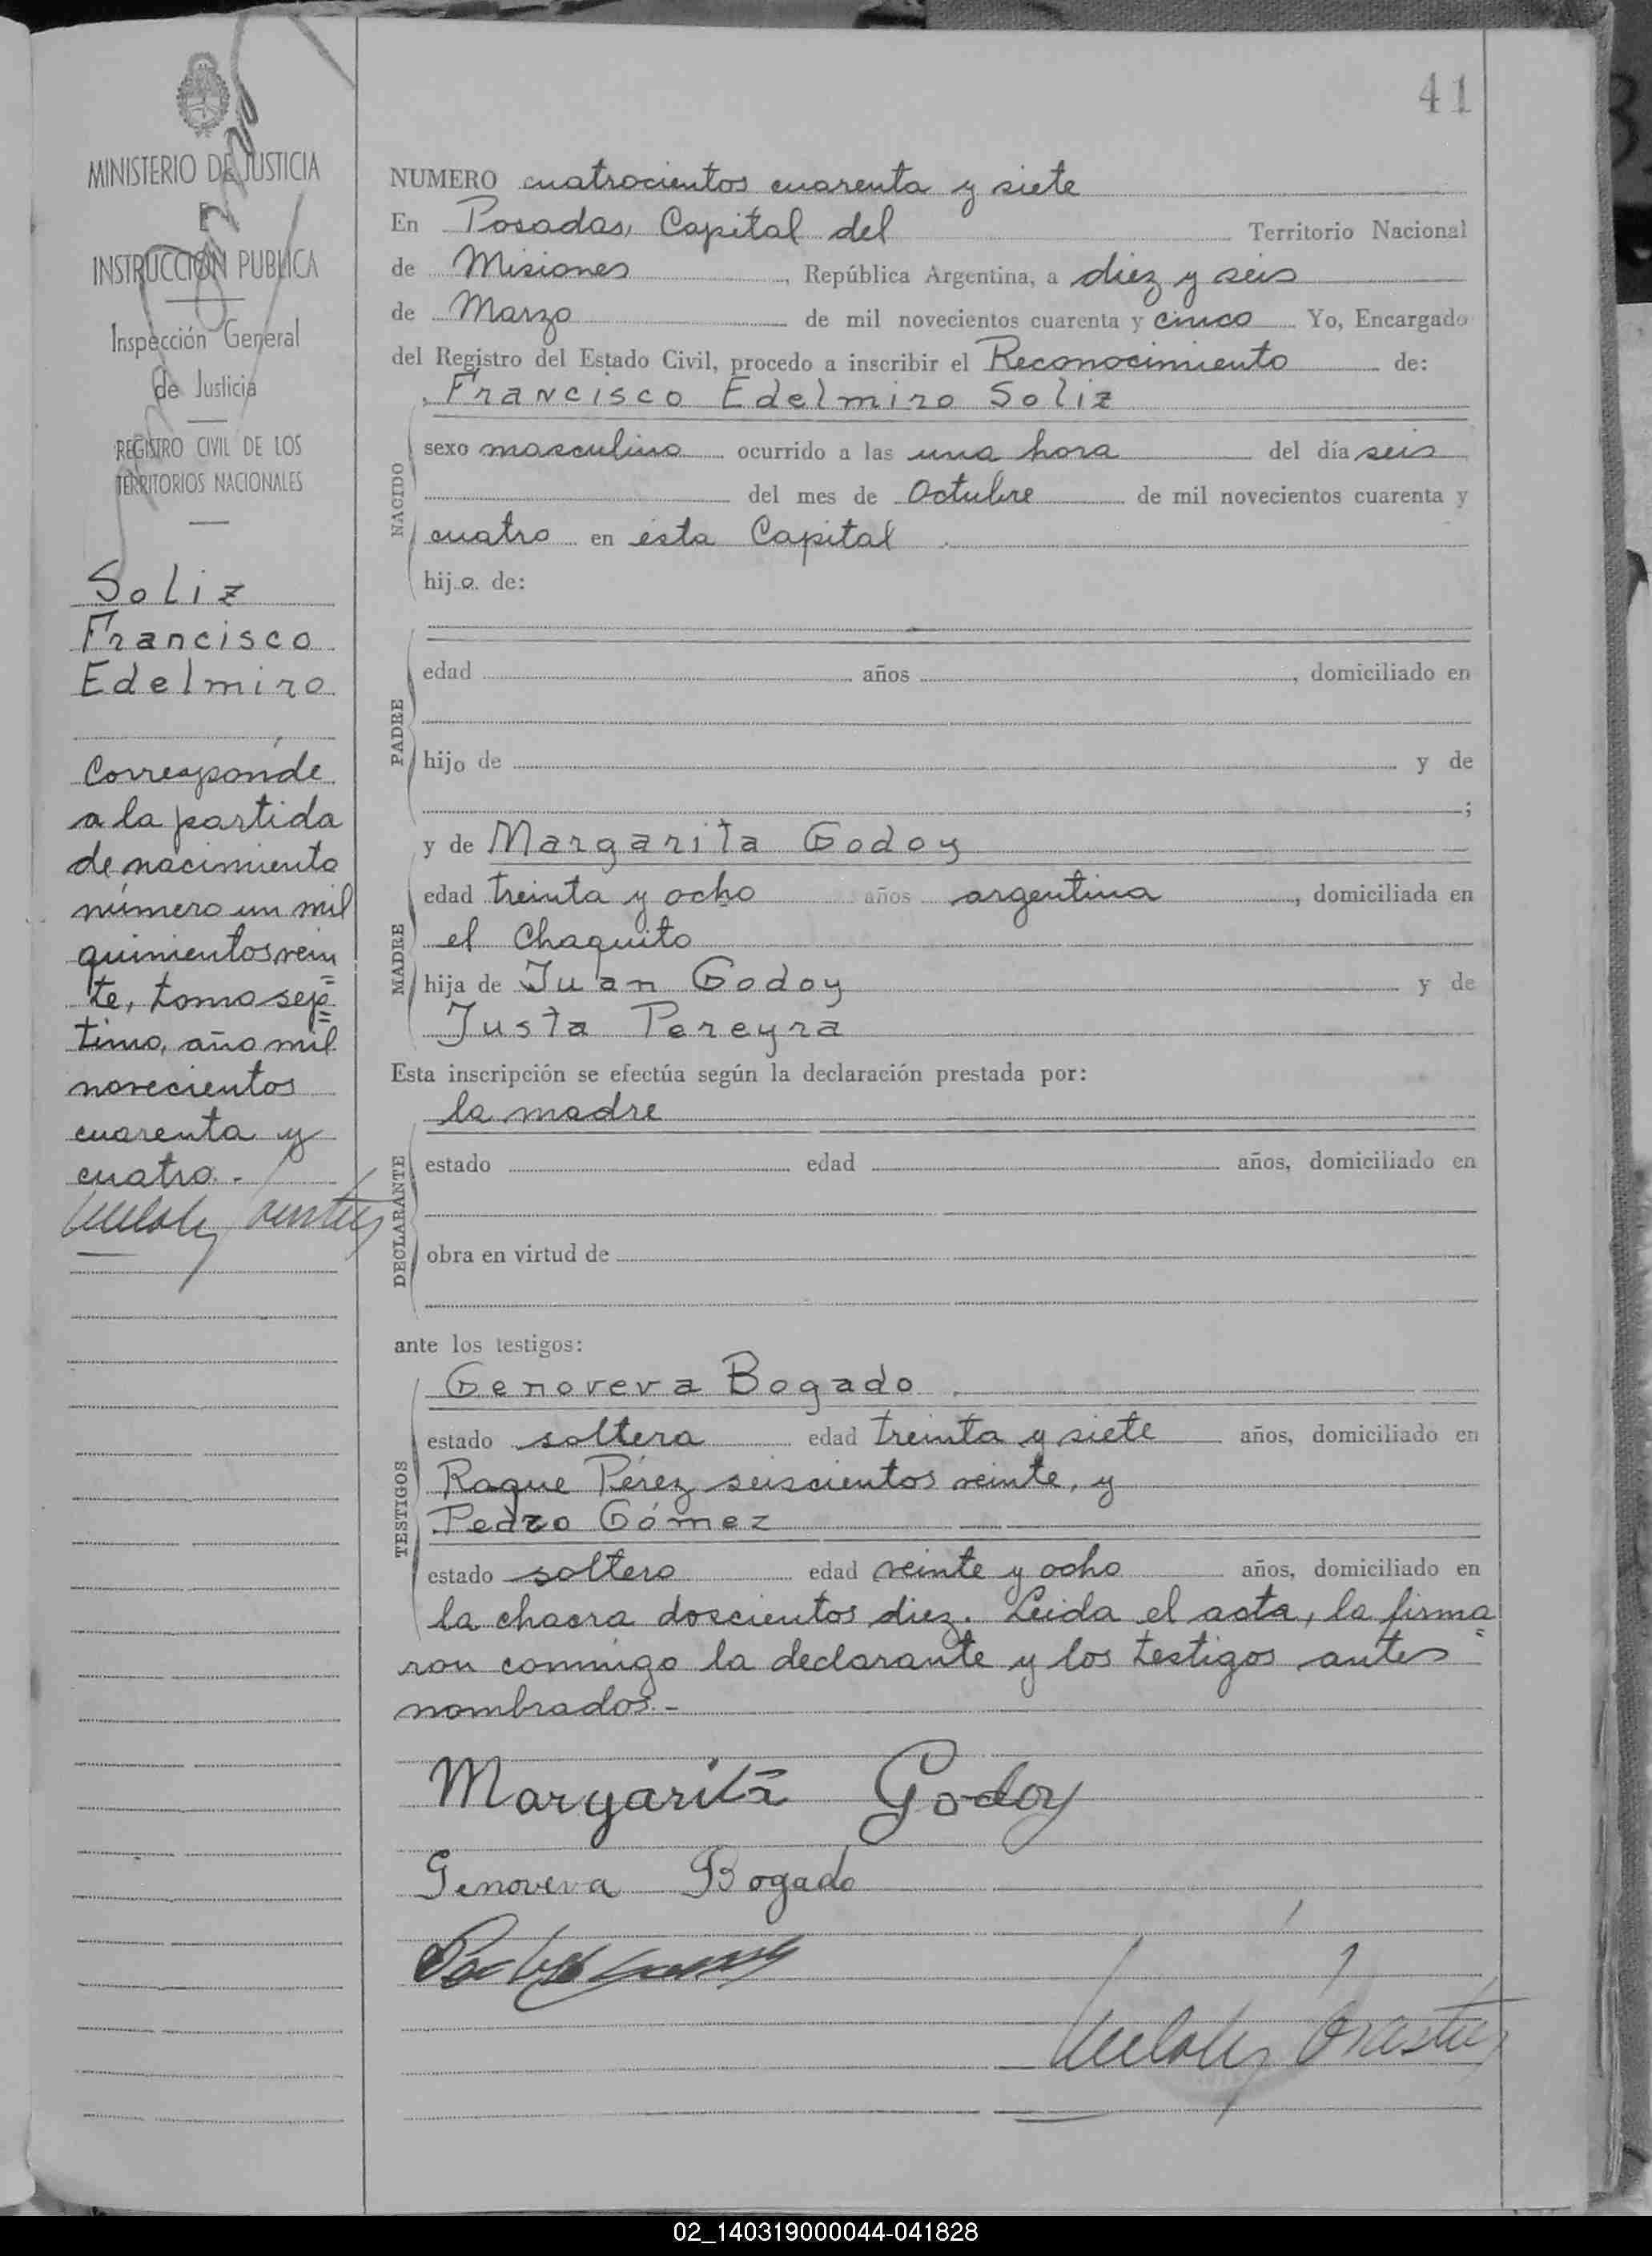 41
MINISTERIO DE JUSTICIA
E
INSTRUCCIÓN PUBLICA
Inspección General
de Justicia
REGISTRO CIVIL DE LOS
TERRITORIOS NACIONALES
Soliz
Francisco
Edelmiro
Corresponde
a la partida
de nacimiento
número un mil
quinientos vein
te, tomo sep=
timo, año mil
novecientos
cuarenta y
cuatro.-
NUMERO cuatrocientos cuarenta y siete
En Posadas, Capital del Territorio Nacional
de Misiones, República Argentina, a diez y seis
de Marzo de mil novecientos cuarenta y cinco Yo, Encargado
del Registro del Estado Civil, procedo a inscribir el Reconocimiento de:
Francisco Edelmiro Soliz
NACIDO
sexo masculino ocurrido a las una hora del día seis
del mes de Octubre de mil novecientos cuarenta y
cuatro en esta Capital
hijo de:
PADRE
edad años , domiciliado en
hijo de y de
;
y de Margarita Godoy
MADRE
edad treinta y ocho años argentina, domiciliada en
el Chaquito
hija de Juan Godoy y de
Justa Pereyra
Esta inscripción se efectúa según la declaración prestada por:
la madre
DECLARANTE
estado edad años, domiciliado en
obra en virtud de
ante los testigos:
Genoveva Bogado
TESTIGOS
estado soltera edad treinta y siete años, domiciliado en
Roque Pérez seiscientos veinte, y
Pedro Gómez
estado soltero edad veinte y ocho años, domiciliado en
la chacra doscientos diez. Leida el acta, la firma=
ron conmigo la declarante y los testigos antes
nombrados.-
Margarita Godoy
Genoveva Bogado
02_140319000044-041828